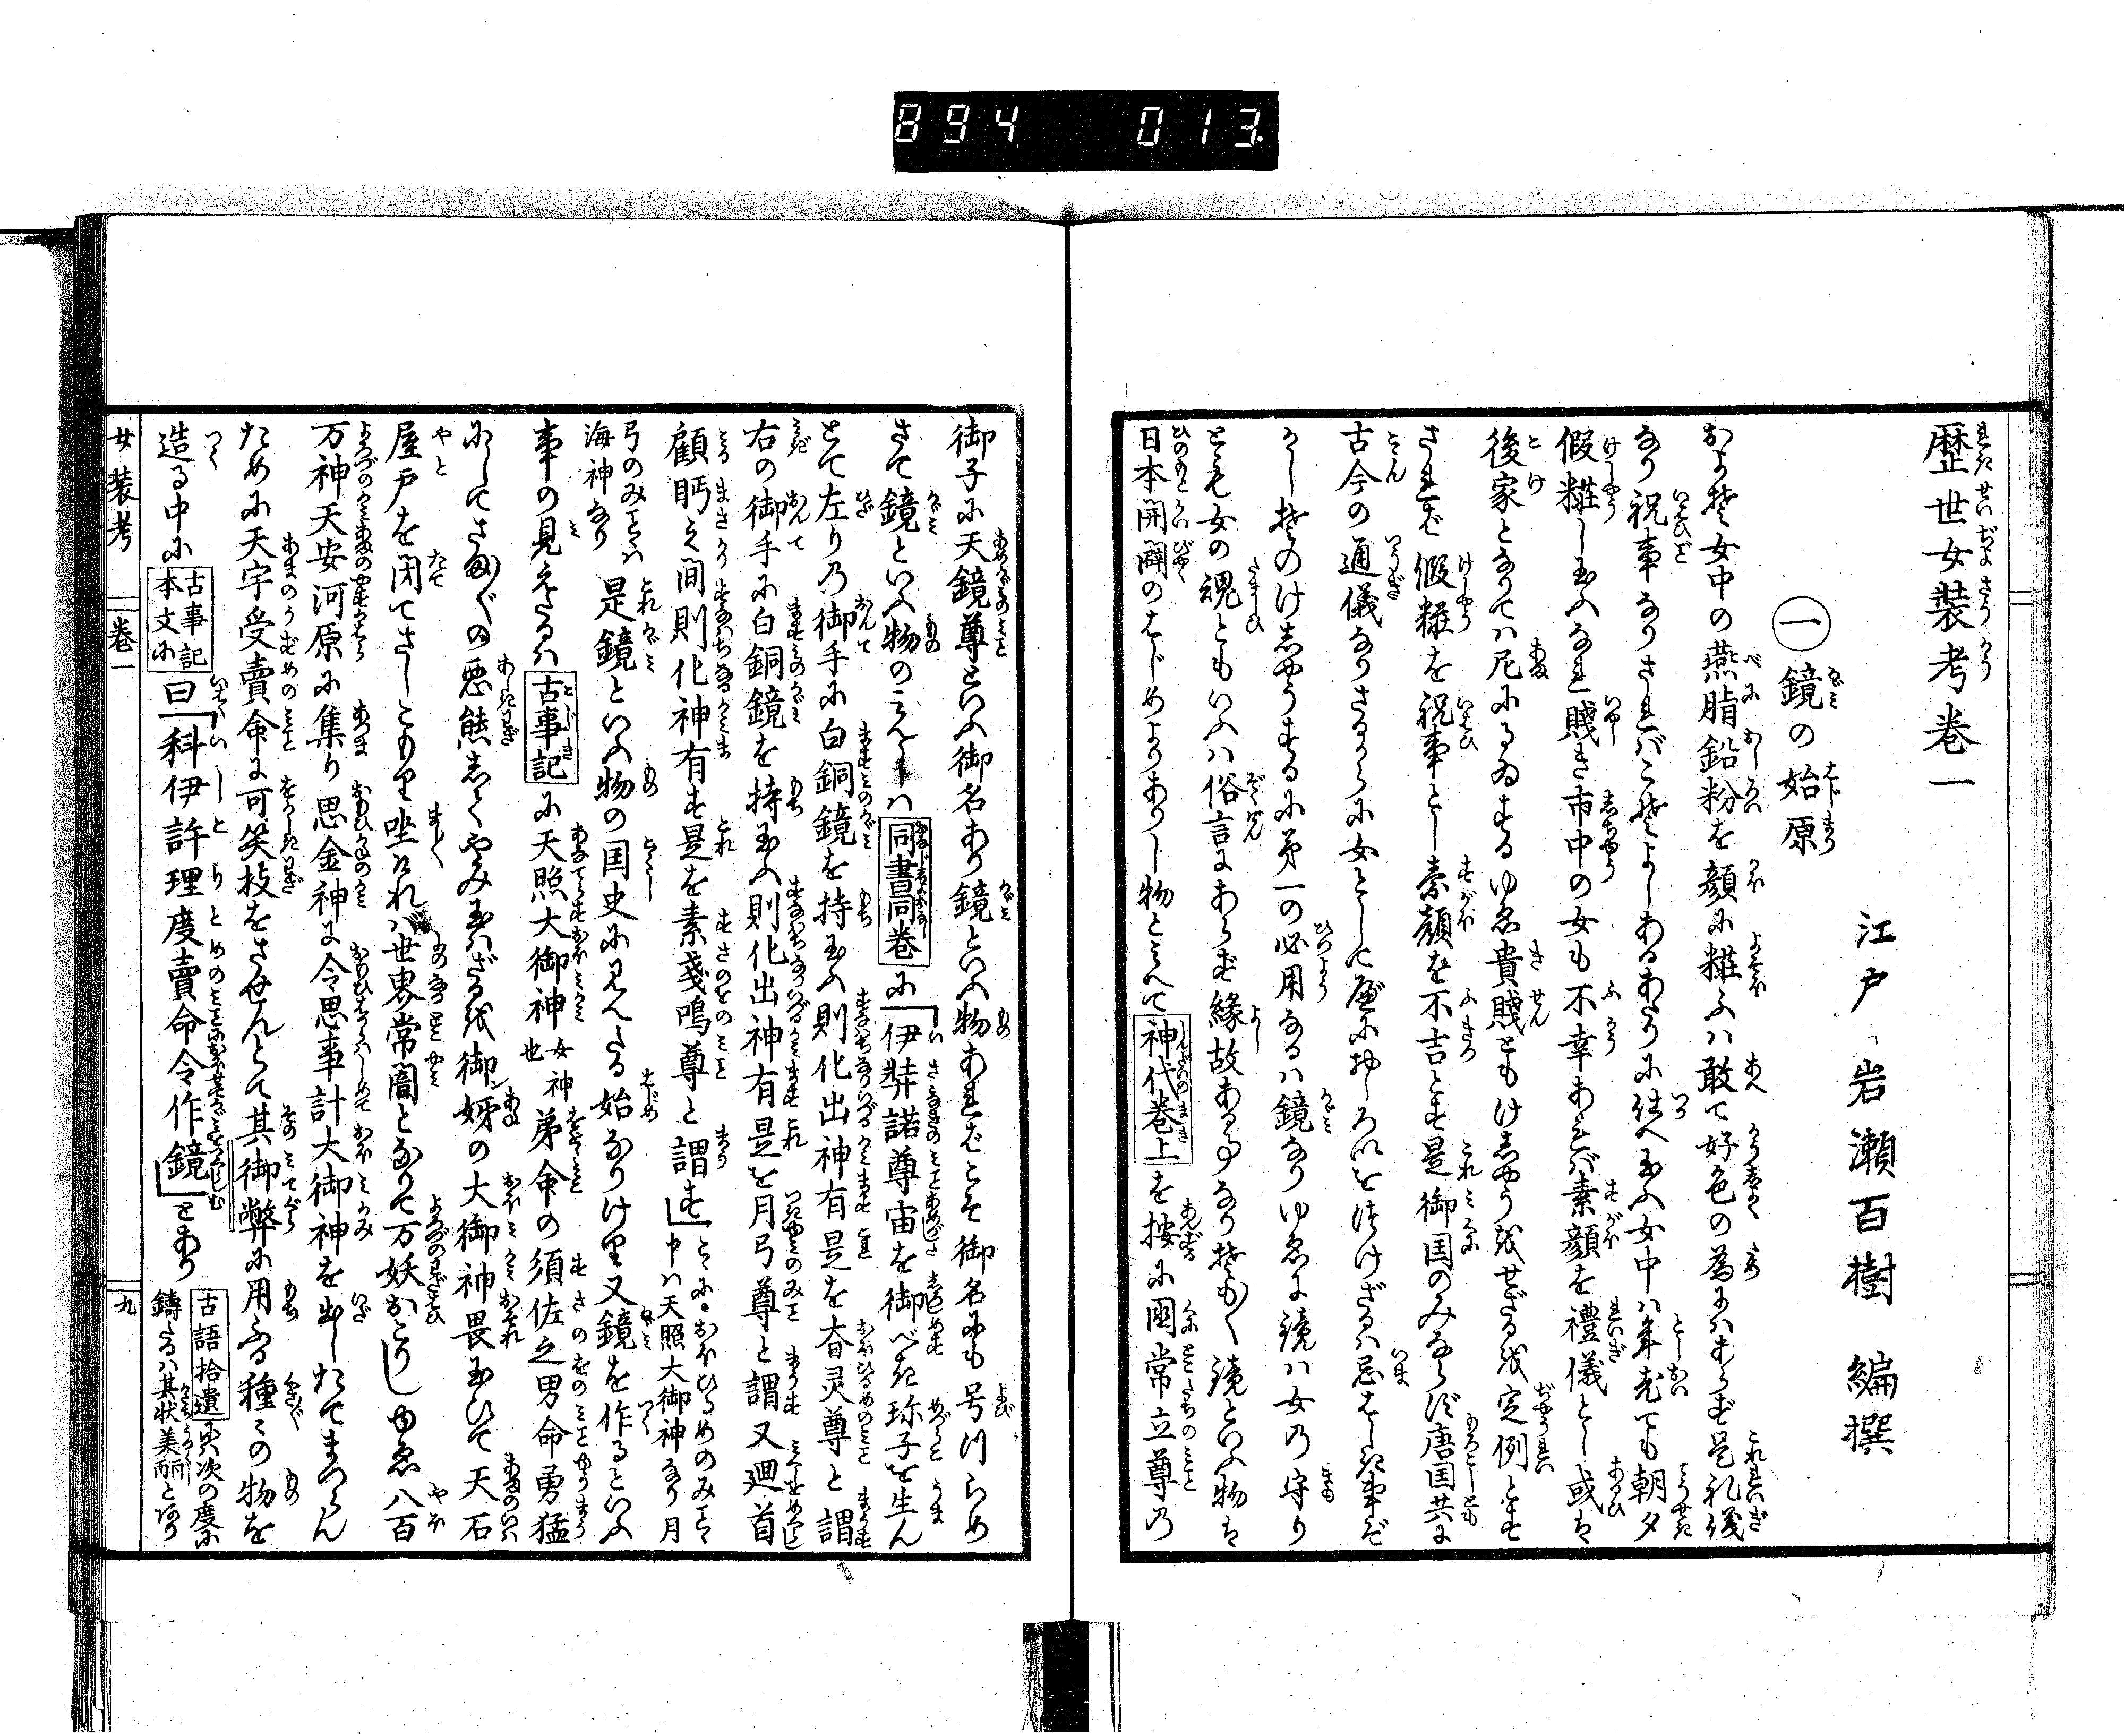 894 013
歴世女装考巻一
江戸 岩瀬百樹 編撰
一 鏡の始原
およそ女中の燕脂鉛粉を顔に粧ふハ敢て好色の為にハあらず是礼儀
なり祝事なりさればこそよしあるあたりに仕へ玉ふ女中ハ年老ても朝夕
假粧し玉ふなれ賤き市中の女も不幸あれバ素顔を禮儀とし或は
後家となりてハ尼になるゆゑ貴賤ともけしやうせざるを定例とす
されバ假粧を祝事とし素顔を不吉とす是御国のみならず唐国共に
古今の通儀なりさるからに女としておしろいをつけざるハ忌はしき事ぞ
かしそのけしやうするに第一の必用なるハ鏡なりゆゑに鏡ハ女の守り
とも女の魂ともいふハ俗言にあらず縁故ある事なりそも〳〵鏡といふ物は
日本開闢のはじめよりありし物と見えて神代巻上を按に国常立尊の
御子に天鏡尊といふ御名あり鏡といふ物あればこそ御名にも号つらめ
さて鏡といふ物の見えしハ同書同巻に「伊弉諾尊宙を御べき珎子を生ん
とて左りの御手に白銅鏡を持玉ふ則化出神有是を大日孁尊と謂
右の御手に白銅鏡を持玉ふ則化出神有是を月弓尊と謂又廻首
顧眄之間則化神有す是を素戔嗚尊と謂す」
是鏡といふ物の国史に見えたる始なりけり又鏡を作るといふ
事の見えたるハ古事記に天照大御神女神也弟命の須佐之男命勇猛
にしてさま〴〵の悪態してやみ玉はざるを御姉の大御神畏玉ひて天石
屋戸を閉てさしこもり坐けれバ世界常闇となりて万妖おこりしゆゑ八百
万神天安河原に集り思金神に令思事計大御神を出したてまつらん
ために天宇受賣命に可笑技をさせんとて其御幣に用ふる種々の物を
造る中に古事記本文に曰「科伊許理度賣命令作鏡」とあり
女装考 巻一 九